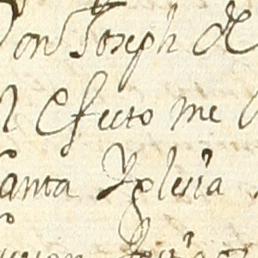 Don Joseph de
l Efecto me
anta Yglesia